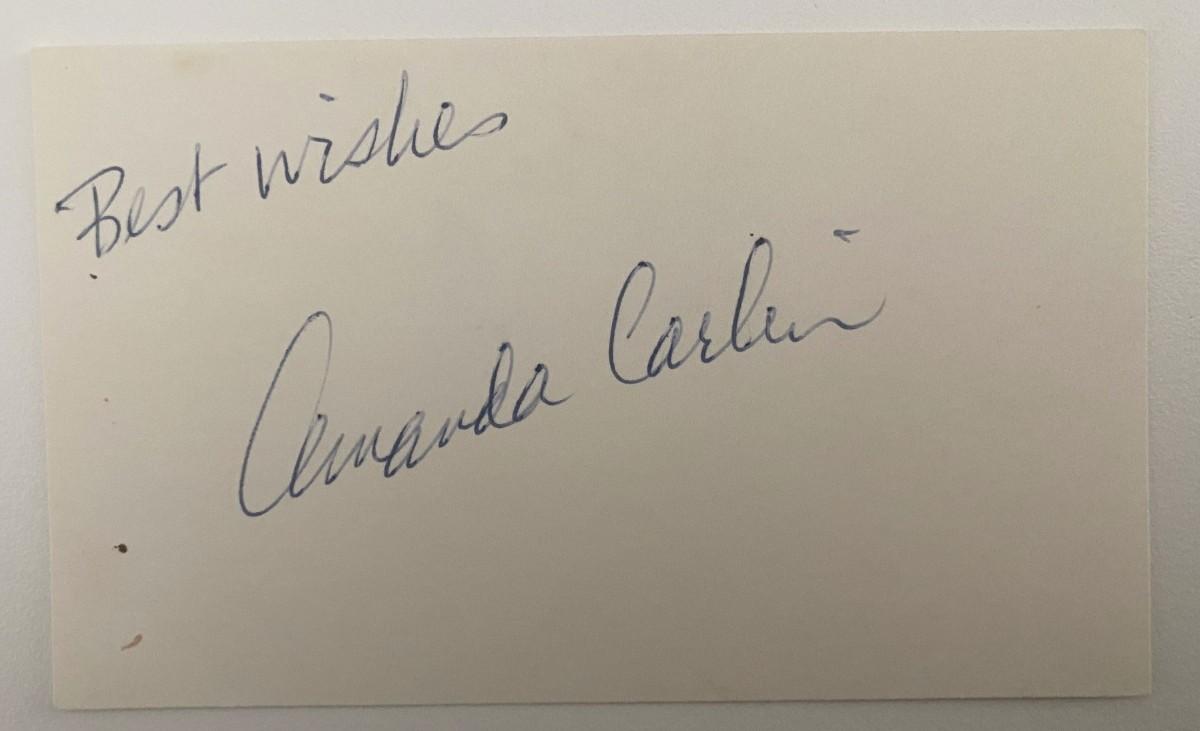 Best wishes
Amanda Carlin